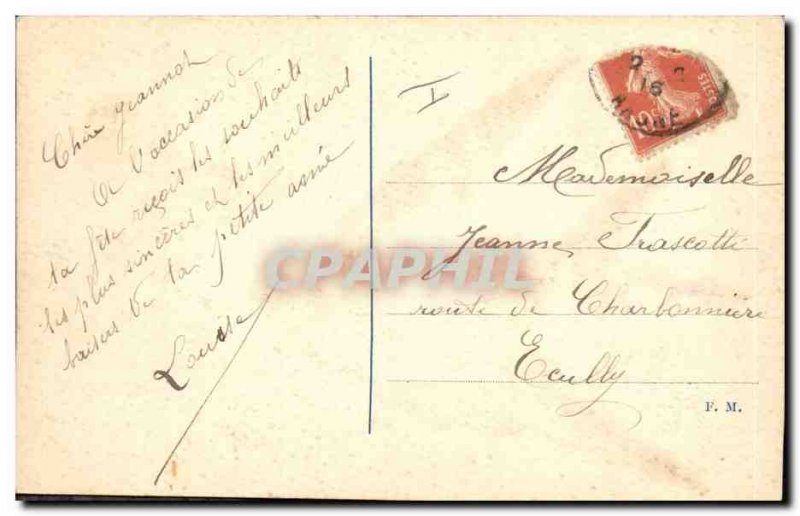 Chère Jeannot
A l'occasion de
ta fête reçois les souhaits
les plus sincères et les meilleurs
baisers de ta petite amie
Louise
I
16
Mademoiselle
Jeanne Trascotti
route de Charbonnière
Ecully
F. M.
CPAPHIL